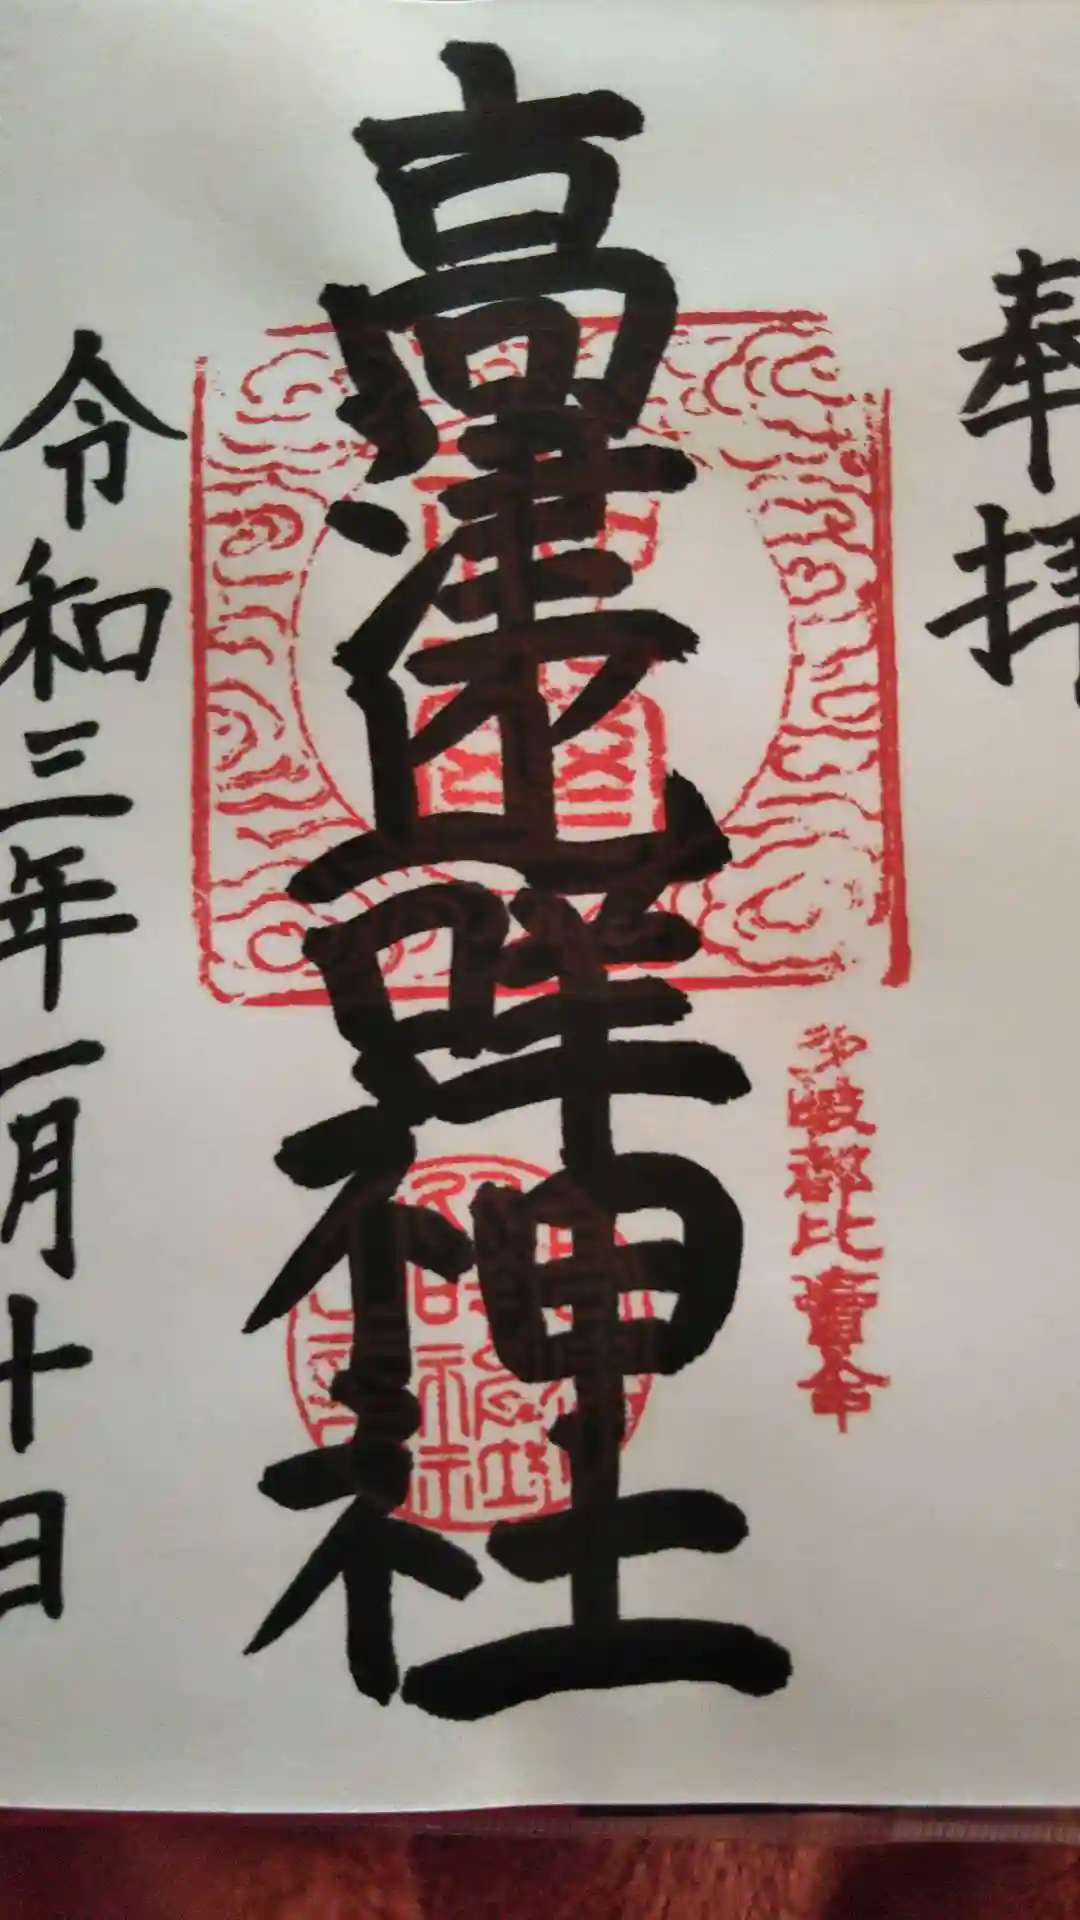 奉拝
多岐都比賣命
高津比咩神社
令和三年一月十日